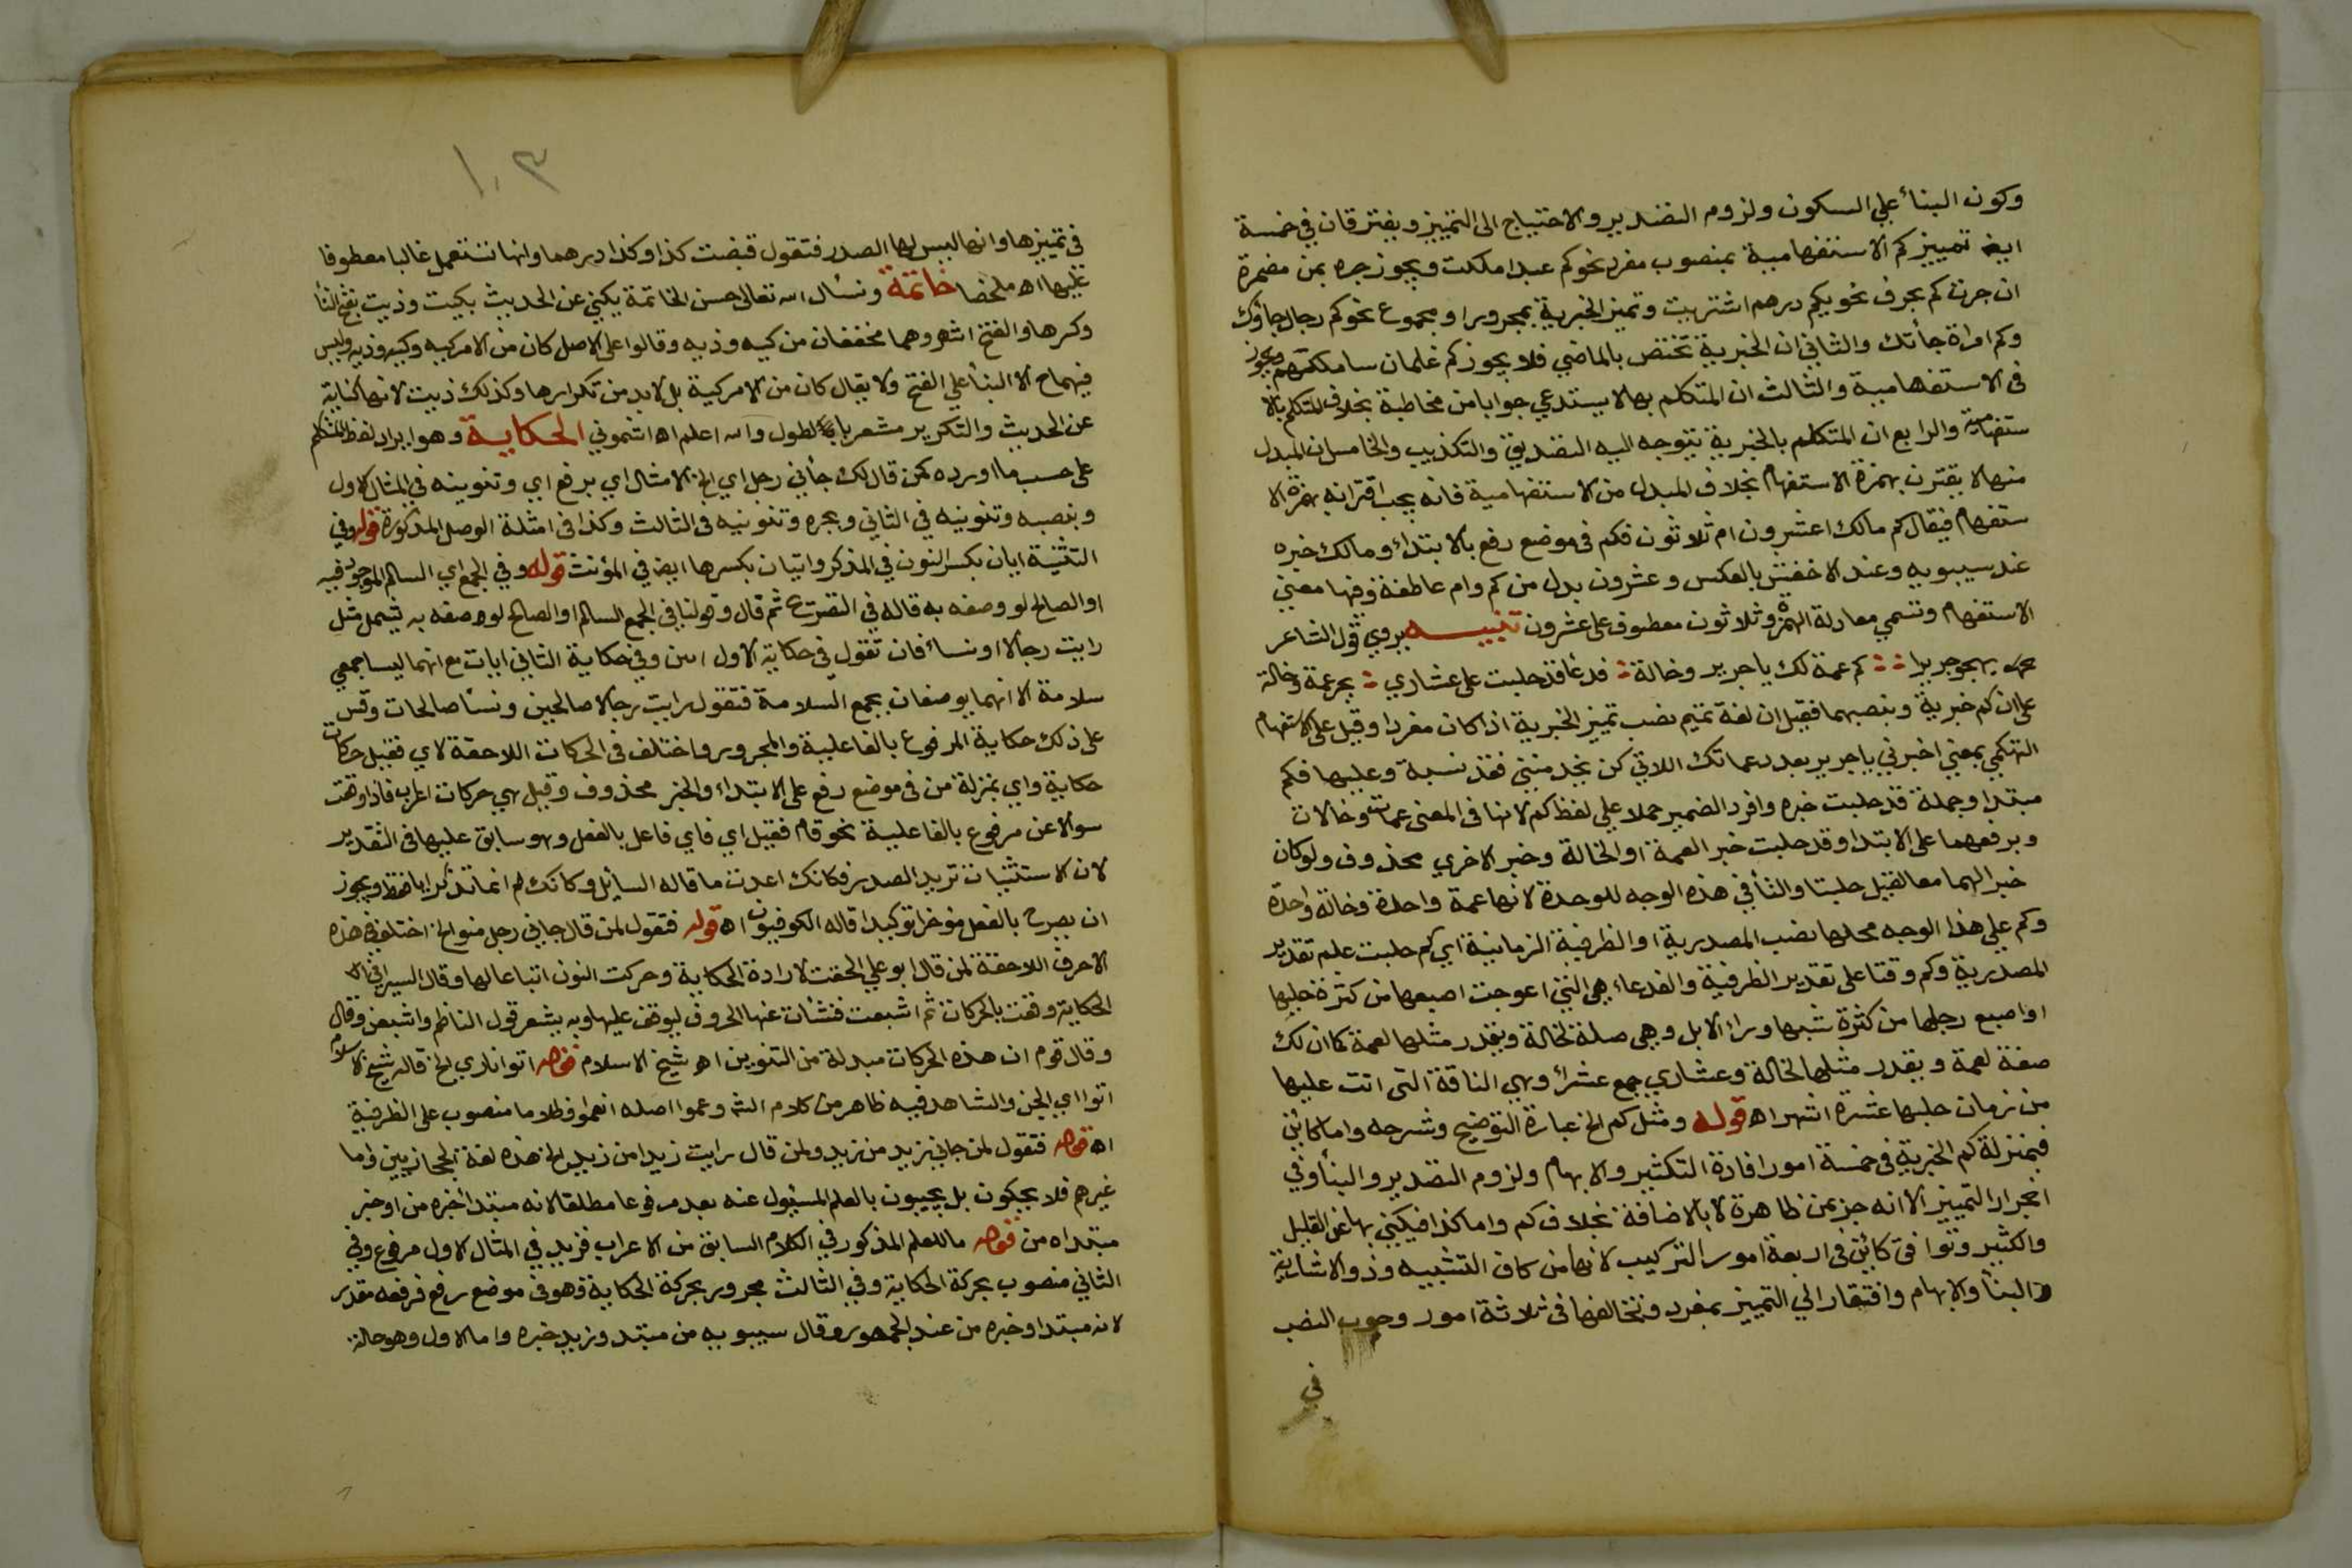 وكون البنأ علي السكون ولزوم التصدير والاحتياج الى التمييز ويفترقان في خمسة
ايضا تمييز كم الاستفهامية بمنصوب مفرد نحو كم عبدا ملكت ويجوز جره بمن مضمرة
ان جرت كم بحرف نحو بكم درهم اشتريت وتميز الخبرية بمجرور او مجموع نحو كم رجال جاؤك
وكم امراة جأتك والثاني ان الخبرية تختص بالماضي فلا يجوز كم غلمان ساملكهم ويجوز
في الاستفهامية والثالث ان المتكلم بها لا يستدعي جوابا من مخاطبة بخلاف المتكلم بالا
ستفهامية والرابع ان المتكلم بالخبرية يتوجه اليه التصديق والتكذيب والخامس ان المبدل
منها لا يقترن بهمزة الاستفهام بخلاف المبدل من الاستفهامية فانه يجب اقترانه بهمزة الا
ستفهام فيقال كم مالك اعشرون ام ثلاثون فكم في موضع رفع بالابتداء ومالك خبره
عند سيبويه وعند الاخفش بالعكس وعشرون بدل من كم وام عاطفة وفيها معني
الاستفهام وتسمي معادلة الهمزة وثلاثون معطوف على عشرون تنبيــــه يروي قول الشاعر
يهجو جريرا كم عمة لك يا جرير وخالة فدعا قد حلبت على عشاري بجر عمة وخالة
على ان كم خبرية وبنصبهما فقيل ان لغة تميم نصب تميز الخبرية اذا كان مفردا وقيل على الاستفهام
التهكمي بمعني اخبرني يا جرير بعدد عماتك اللاتي كن يخدمنني فقد نسيته وعليها فكم
مبتدا وجملة قد حلبت خبره وافرد الضمير حملا علي لفظ كم لانها في المعنى عمات وخالات
وبرفعهما على الابتدا وقد حلبت خبر العمة او الخالة وخبر الاخري محذوف ولو كان
خبرا لهما معا لقيل حلبتا والتأ في هذه الوجه للوحدة لانها عمة واحدة وخالة واحدة
وكم علي هذا الوجه محلها نصب المصدرية او الظرفية الزمانية اي كم حلبت علم تقدير
المصدرية وكم وقتا على تقدير الظرفية والفدعاء هي التي اعوجت اصبعها من كثرة حلبها
او اصبع رجلها من كثرة شيها وراء الابل وهي صلة لخالة ويقدر مثلها لعمة كما ان لك
صفة لعمة ويقدر مثلها لخالة وعشاري جمع عشرأ وهي الناقة التي اتت عليها
من زمان حلبها عشرة اشهر اه قوله ومثل كم الخ عبارة التوضيح وشرحه واما كائن
فبمنزلة كم الخبرية في خمسة امور افادة التكثير والابهام ولزوم التصدير والبنأ وفي
انجرار التمييز الا انه جر بمن ظاهرة لا بالاضافة بخلاف كم واما كذا فيكني بها عن القليل
والكثير وتوافق كائن في اربعة امور التركيب لانها من كاف التشبيه وذو الاشارية
والبنأ والابهام وافتقار الي التمييز بمفرد وتخالفها في ثلاثة امور وجوب النصب
في
١٠٣
في تميزها وانها ليس لها الصدر فتقول قبضت كذا وكذا درهما وانها تستعمل غالبا معطوفا
عليها اه ملخصا خاتمة ونسأل الله تعالى حسن الخاتمة يكني عن الحديث بكيت وذيت بفتح التأ
وكسرها والفتح اشهر وهما مخففان من كيه وذيه وقالوا على الاصل كان من الامر كيه وكيه وذيه وذيه وليس
فيهما ح الا البنأ علي الفتح ولا يقال كان من الامر كية بل لابد من تكرارها وكذلك ذيت لانها كناية
عن الحديث والتكرير مشعر بالطول والله اعلم اه اشموني الحكايـة وهو ايراد لفظ المتكلم
على حسب ما اورده كمن قال لك جأني رجل اي الخ الامثال اي برفع اي وتنوينه في المثال الاول
وبنصبه وتنوينه في الثاني وبجره وتنوينه في الثالث وكذا في امثلة الوصل المذكورة قوله وفي
التثنية ايان بكسر النون في المذكر وايتان بكسرها ايضا في المؤنث قوله وفي الجمع اي السالم الموجود فيه
او الصالح لو وصفه به قاله في التصريح ثم قال وقولنا في الجمع السالم او الصالح لو وصفه به يشمل مثل
رايت رجالا او نسأ فان تقول في حكاية الاول ايين وفي حكاية الثاني ايات مع انهما ليسا جمعي
سلامة الا انهما يوصفان بجمع السلامة فتقول رايت رجالا صالحين ونسأ صالحات وقس
على ذلك حكاية المرفوع بالفاعلية والمجرور واختلف في الحركات اللاحقة لاي فقيل حركات
حكاية واي بمنزلة من في موضع رفع على الابتداء والخبر محذوف وقيل هي حركات اعراب فاذا وقعت
سوالا عن مرفوع بالفاعلية نحو قام فقيل اي فاي فاعل بالفعل وهو سابق عليها في التقدير
لان الاستثبات تريد الصدر فكانك اعدت ما قاله السايل وكانك لم انما تذكر ايا فقط ويجوز
ان يصرح بالفعل مؤخرا توكيدا قاله الكوفيون اه قوله فتقول لمن قال جاني رجل منو الخ اختلف في هذه
الاحرف اللاحقة لمن قال ابو علي الحقت لارادة الحكاية وحركت النون اتباعا لها وقال السيرافي
الحكاية وقعت بالحركات ثم اشبعت فنشأت عنها الحروف ليوقف عليها وبه يشعر قول الناظم واشبعن وقال
وقال قوم ان هذه الحركات مبدلة من التنوين اه شيخ الاسلام قوله اتوا ناري الخ قاله شيخ الاسلام
اتوا اي الجن والشاهد فيه ظاهر من كلام الش وعموا اصله انعموا وظلاما منصوب على الظرفية
اه قوله فتقول لمن جاني زيد من زيد ولمن قال رايت زيدا من زيدا الخ هذه لغة الحجازيين واما
غيرهم فلا يحكون بل يجيبون بالعلم المسئول عنه بعد مرفوعا مطلقا لانه مبتدأ خبره من او خبر
مبتداه من قوله ما للعلم المذكور في الكلام السابق من الاعراب فزيد في المثال الاول مرفوع وفي
الثاني منصوب بحركة الحكاية وفي الثالث مجرور بحركة الحكاية فهو في موضع رفع فرفعه مقدر
لانه مبتدا وخبره من عند الجمهور وقال سيبويه من مبتد وزيد خبره واما الاول وهو حالة